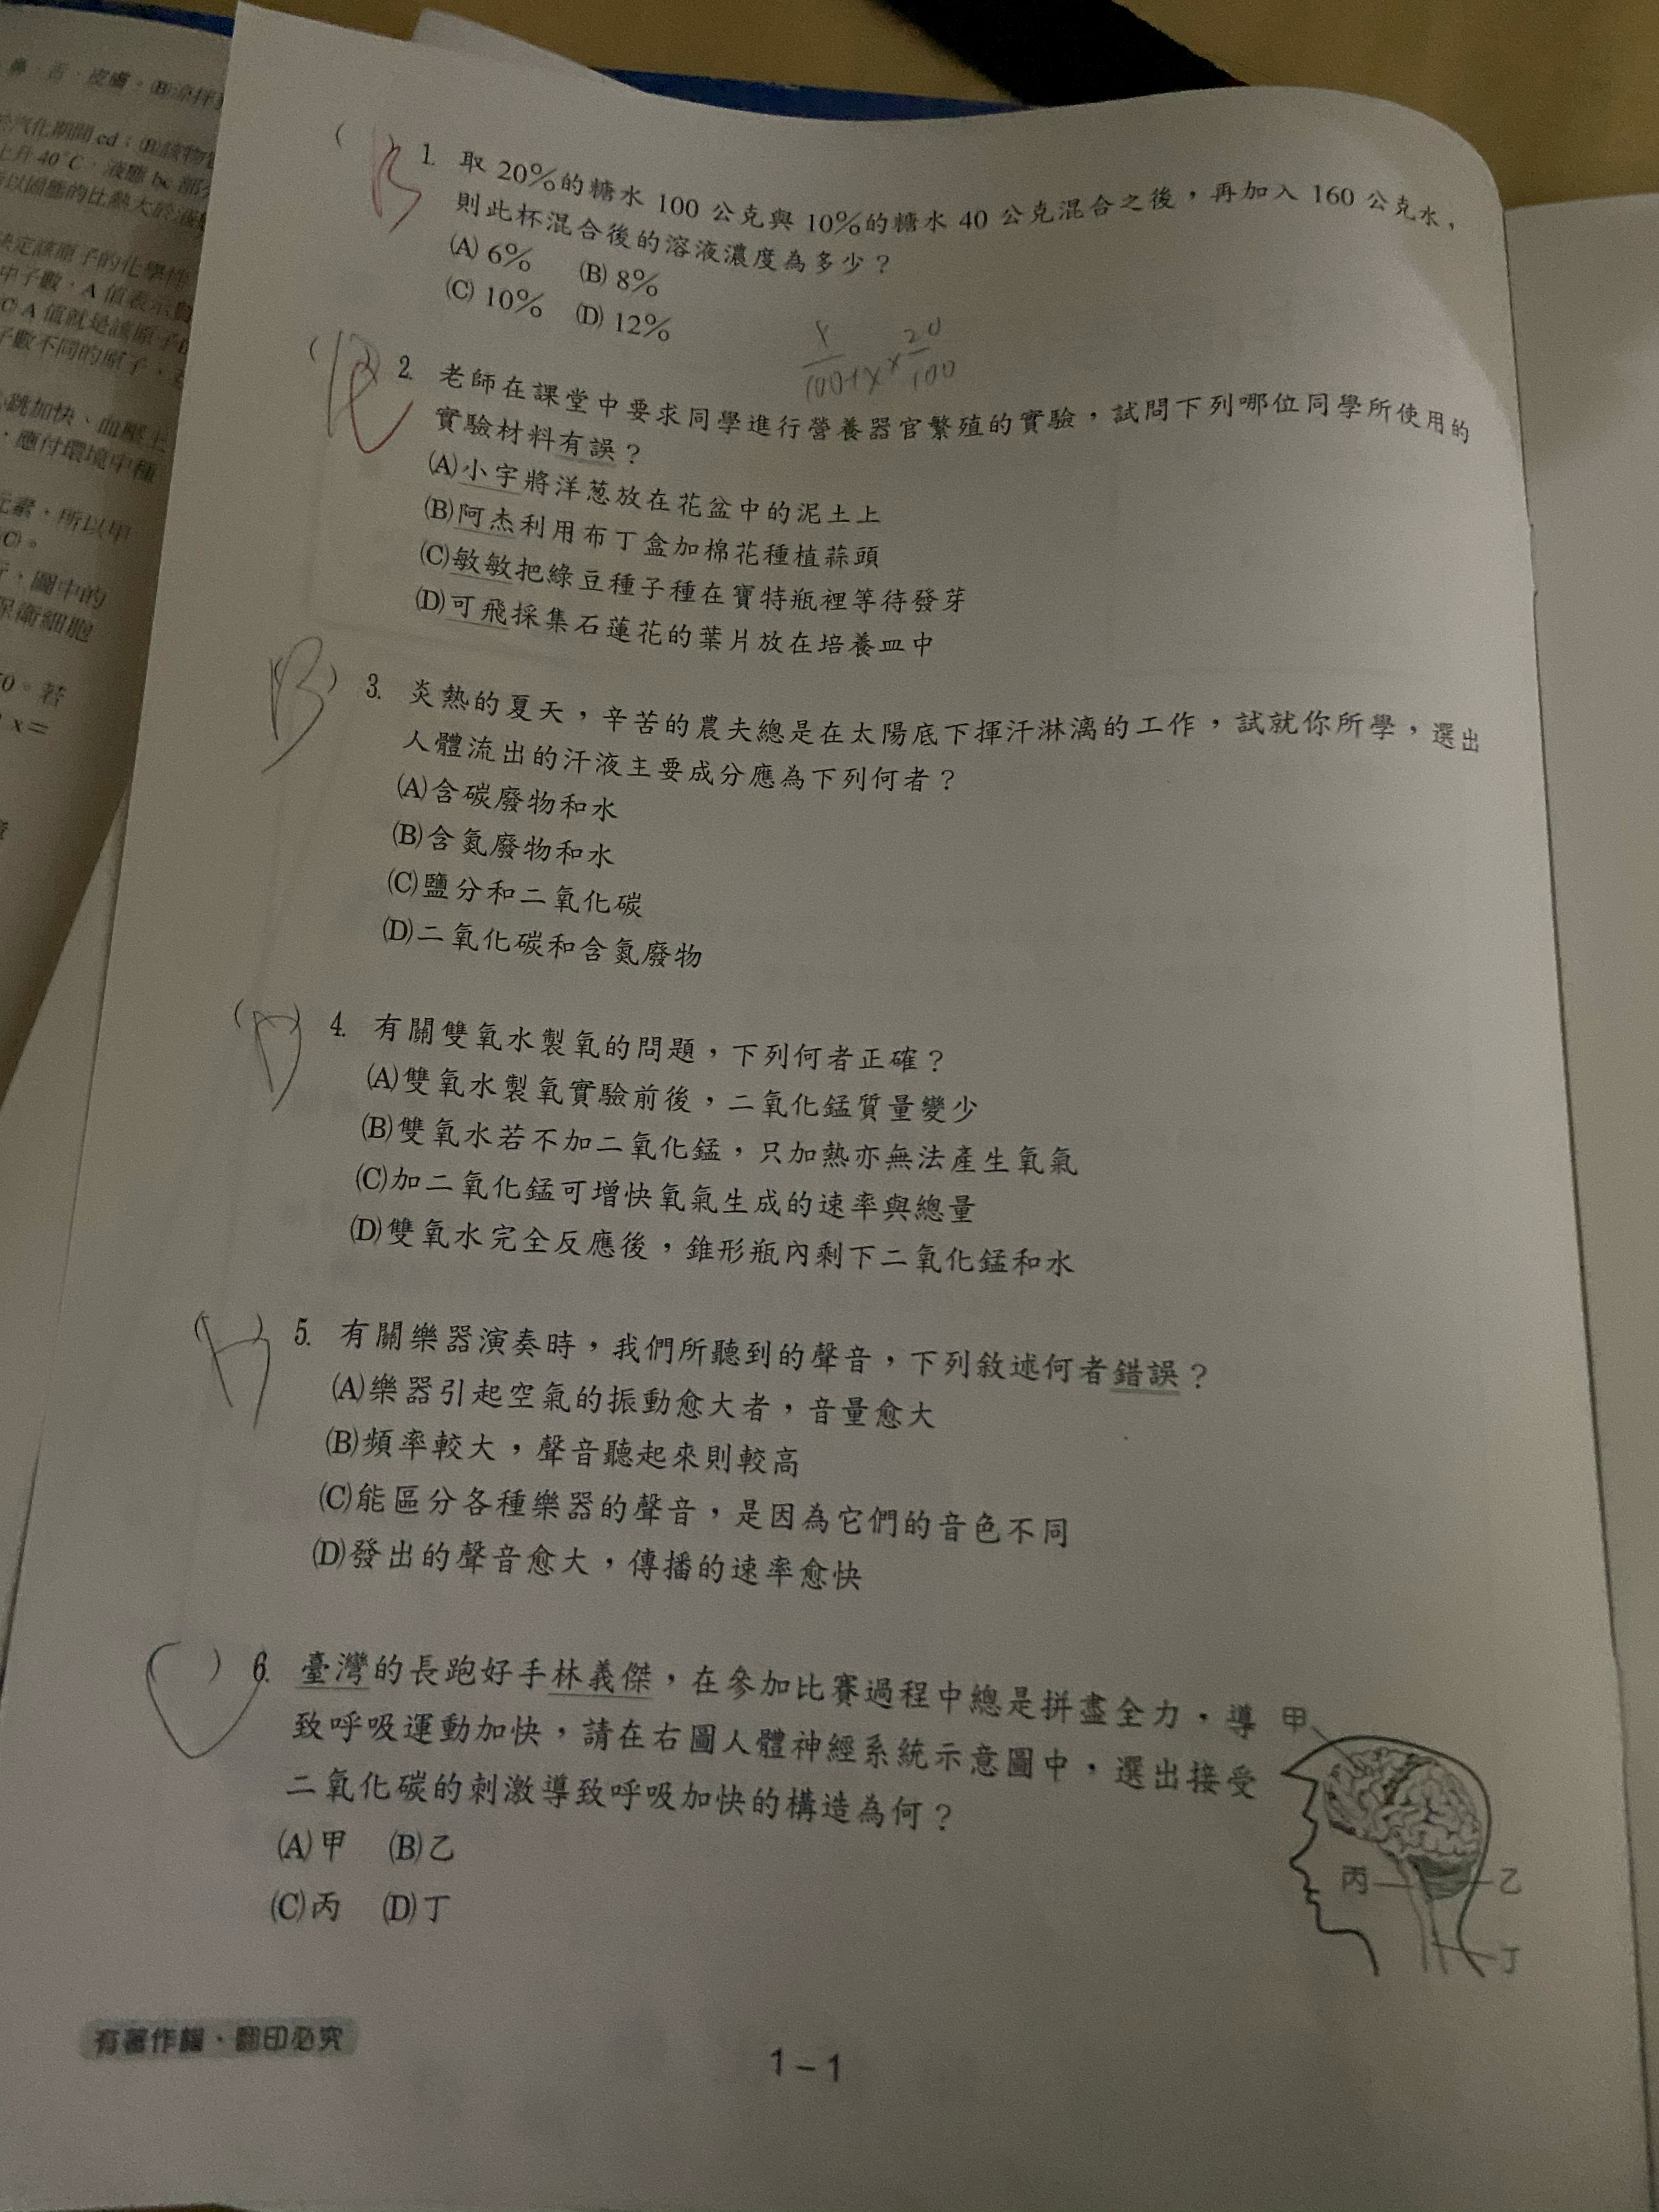 鼻、舌、皮膚。(B)涼拌
汽化期間 cd；(B)該物
上升 40°C，液態 bc 部分
所以固態的比熱大於液態
決定該原子的化學性
中子數，A 值表示質
(C) A 值就是該原子
子數不同的原子，
心跳加快、血壓上
，應付環境中種
元素，所以甲
(C)。
，圖中的
保衛細胞
0。若
x＝
( B 1. 取 20%的糖水 100 公克與 10%的糖水 40 公克混合之後，再加入 160 公克水，
則此杯混合後的溶液濃度為多少？
(A) 6% (B) 8%
(C) 10% (D) 12%
20
100+x × 100
( ) 2. 老師在課堂中要求同學進行營養器官繁殖的實驗，試問下列哪位同學所使用的
實驗材料有誤？
(A)小宇將洋蔥放在花盆中的泥土上
(B)阿杰利用布丁盒加棉花種植蒜頭
(C)敏敏把綠豆種子種在寶特瓶裡等待發芽
(D)可飛採集石蓮花的葉片放在培養皿中
(B) 3. 炎熱的夏天，辛苦的農夫總是在太陽底下揮汗淋漓的工作，試就你所學，選出
人體流出的汗液主要成分應為下列何者？
(A)含碳廢物和水
(B)含氮廢物和水
(C)鹽分和二氧化碳
(D)二氧化碳和含氮廢物
(D) 4. 有關雙氧水製氧的問題，下列何者正確？
(A)雙氧水製氧實驗前後，二氧化錳質量變少
(B)雙氧水若不加二氧化錳，只加熱亦無法產生氧氣
(C)加二氧化錳可增快氧氣生成的速率與總量
(D)雙氧水完全反應後，錐形瓶內剩下二氧化錳和水
( ) 5. 有關樂器演奏時，我們所聽到的聲音，下列敘述何者錯誤？
(A)樂器引起空氣的振動愈大者，音量愈大
(B)頻率較大，聲音聽起來則較高
(C)能區分各種樂器的聲音，是因為它們的音色不同
(D)發出的聲音愈大，傳播的速率愈快
( ) 6. 臺灣的長跑好手林義傑，在參加比賽過程中總是拼盡全力，導
致呼吸運動加快，請在右圖人體神經系統示意圖中，選出接受
二氧化碳的刺激導致呼吸加快的構造為何？
(A)甲 (B)乙
(C)丙 (D)丁
甲
丙 乙
丁
有著作權・翻印必究
1－1